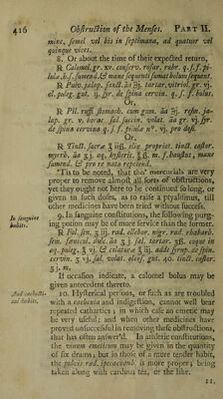 416 Obstruction of the Menses. PART II.
mine, semel vel bis in septimana, ad quatuor vel
quinque vices.
8. Or about the time of their expected return,
℞ Calomel. gr. xv. conserv. rosar. rubr. q. s. f. pi-
lula. h. s. sumend. & mane sequenti sumat bolum sequent.
℞ Pulv. jalap. sand. āā ʒij. tartar. vitriol. gr. vj.
ol. puleg. gut. ij. syr. de spina cervin. q. s. f. bolus.
Or,
℞ Pil. ruffi stomach. cum gum. āā ʒj. resin. ja-
lap. gr. v. borac. sal. succin. volat. āā gr. vj. syr.
de spina cervina q. s. f. pilulæ n°. vj. pro dosi.
Or,
℞ Tinct. sacræ ʒ iiß. elix. propriet. tinct. castor.
myrrh. āā ʒj. aq. hysteric. ʒß. m. f. haustus, mane
sumend. & pro re nata repetend.
'Tis to be noted, that tho' mercurials are very
proper to remove almost all sorts of obstructions,
yet they ought not here to be continued so long, or
given in such doses, as to raise a ptyalism, till
other medicines have been tried without success.
In sanguine
habits.
9. In sanguine constitutions, the following purg-
ing potion may be of more service than the former.
℞ Fol. sen. ʒ iij. rad. ellebor. nigr. rad. rhabarb.
sem. fænicul. dulc. āā ʒj. sal. tartar. ʒß. coque in
aq. puleg. ℥ vj. & colaturæ ℥ iij. adde syrup. de spin.
cervin. ʒ vj. sal. volat. oleos. gut. 40. tinct. castor.
ʒj. m.
If occasion indicate, a calomel bolus may be
given antecedent thereto.
And cachecti-
cal habits.
10. Hysterical persons, or such as are troubled
with a cachexia and indigestion, cannot well bear
repeated cathartics; in which case an emetic may
be very useful; and when other medicines have
proved unsuccessful in removing these obstructions,
that has often answer'd. In athletic constitutions,
the vinum emeticum may be given in the quantity
of six drams; but in those of a more tender habit,
the pulvis rad. ipecacuanh. is more proper; being
taken along with carduus tea, or the like.
11.